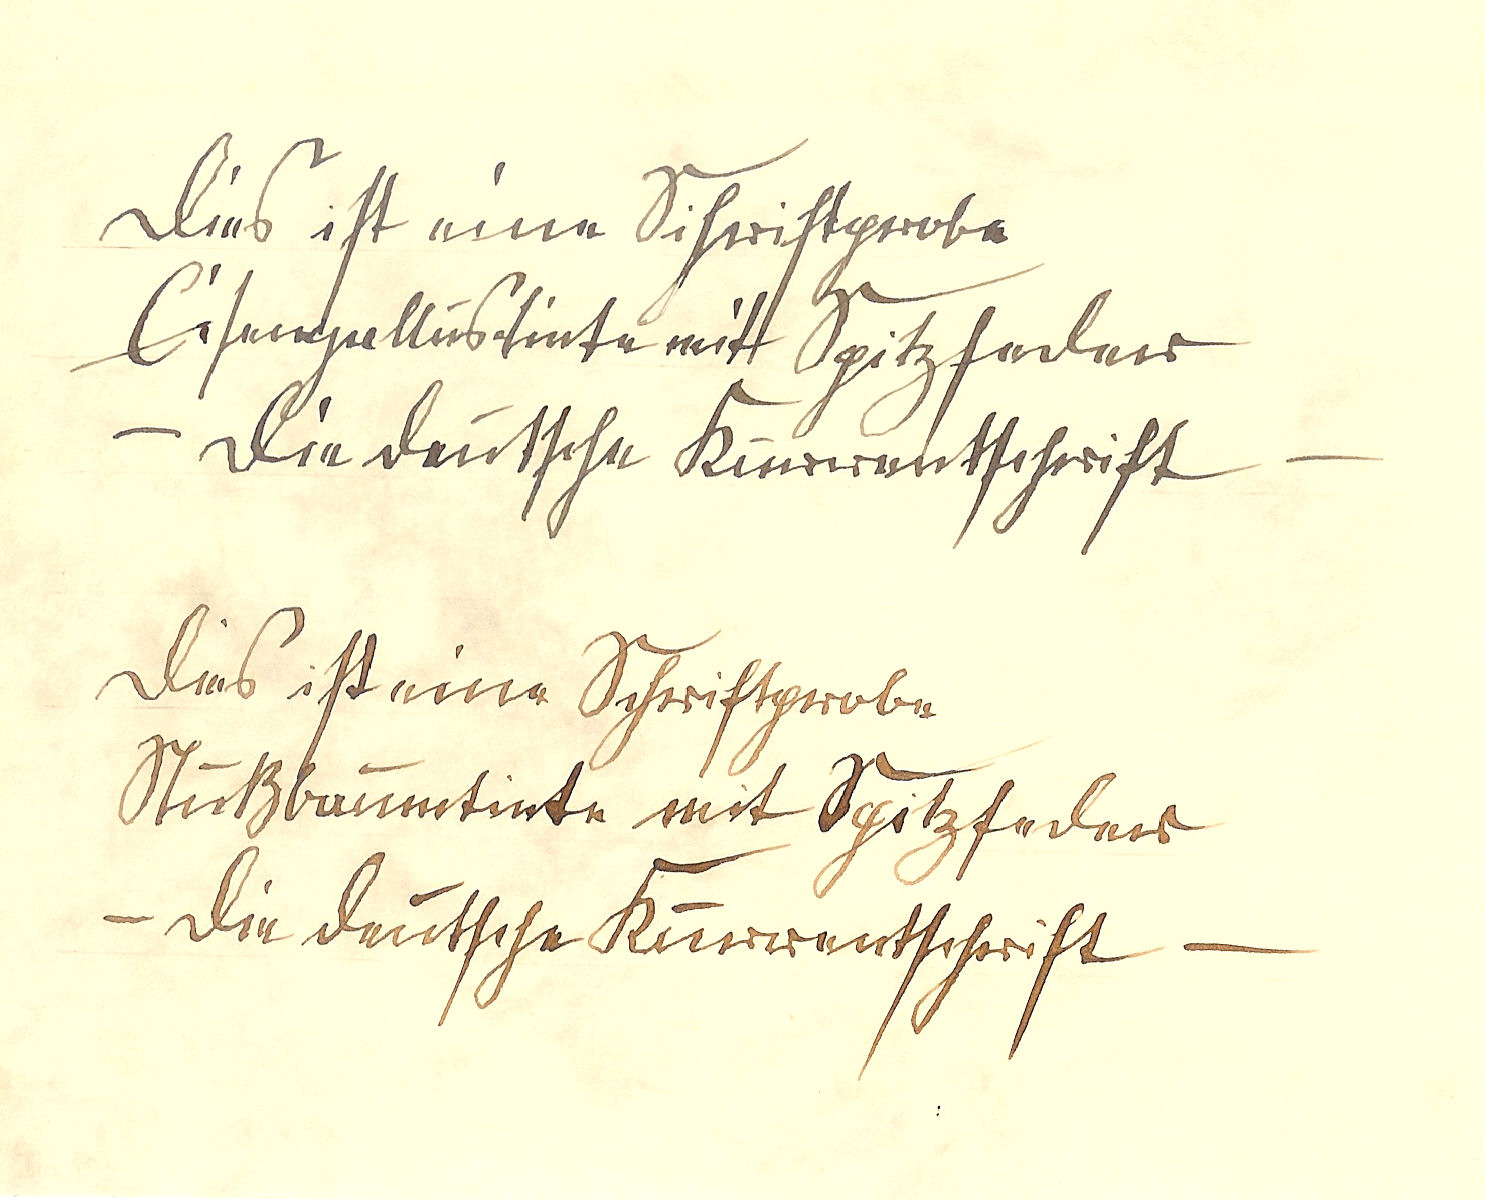 Dies ist eine Schriftprobe
Eisengallustinte mit Spitzfeder
– Die deutsche Kurrentschrift –
Dies ist eine Schriftprobe
Nußbaumtinte mit Spitzfeder
– Die deutsche Kurrentschrift –